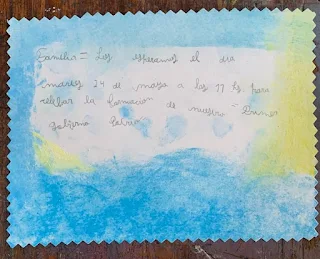 Familia= Los esperamos el día
martes 24 de mayo a las 11 hs para
relebar la formacion de nuestro "Primer
gobierno Patrio